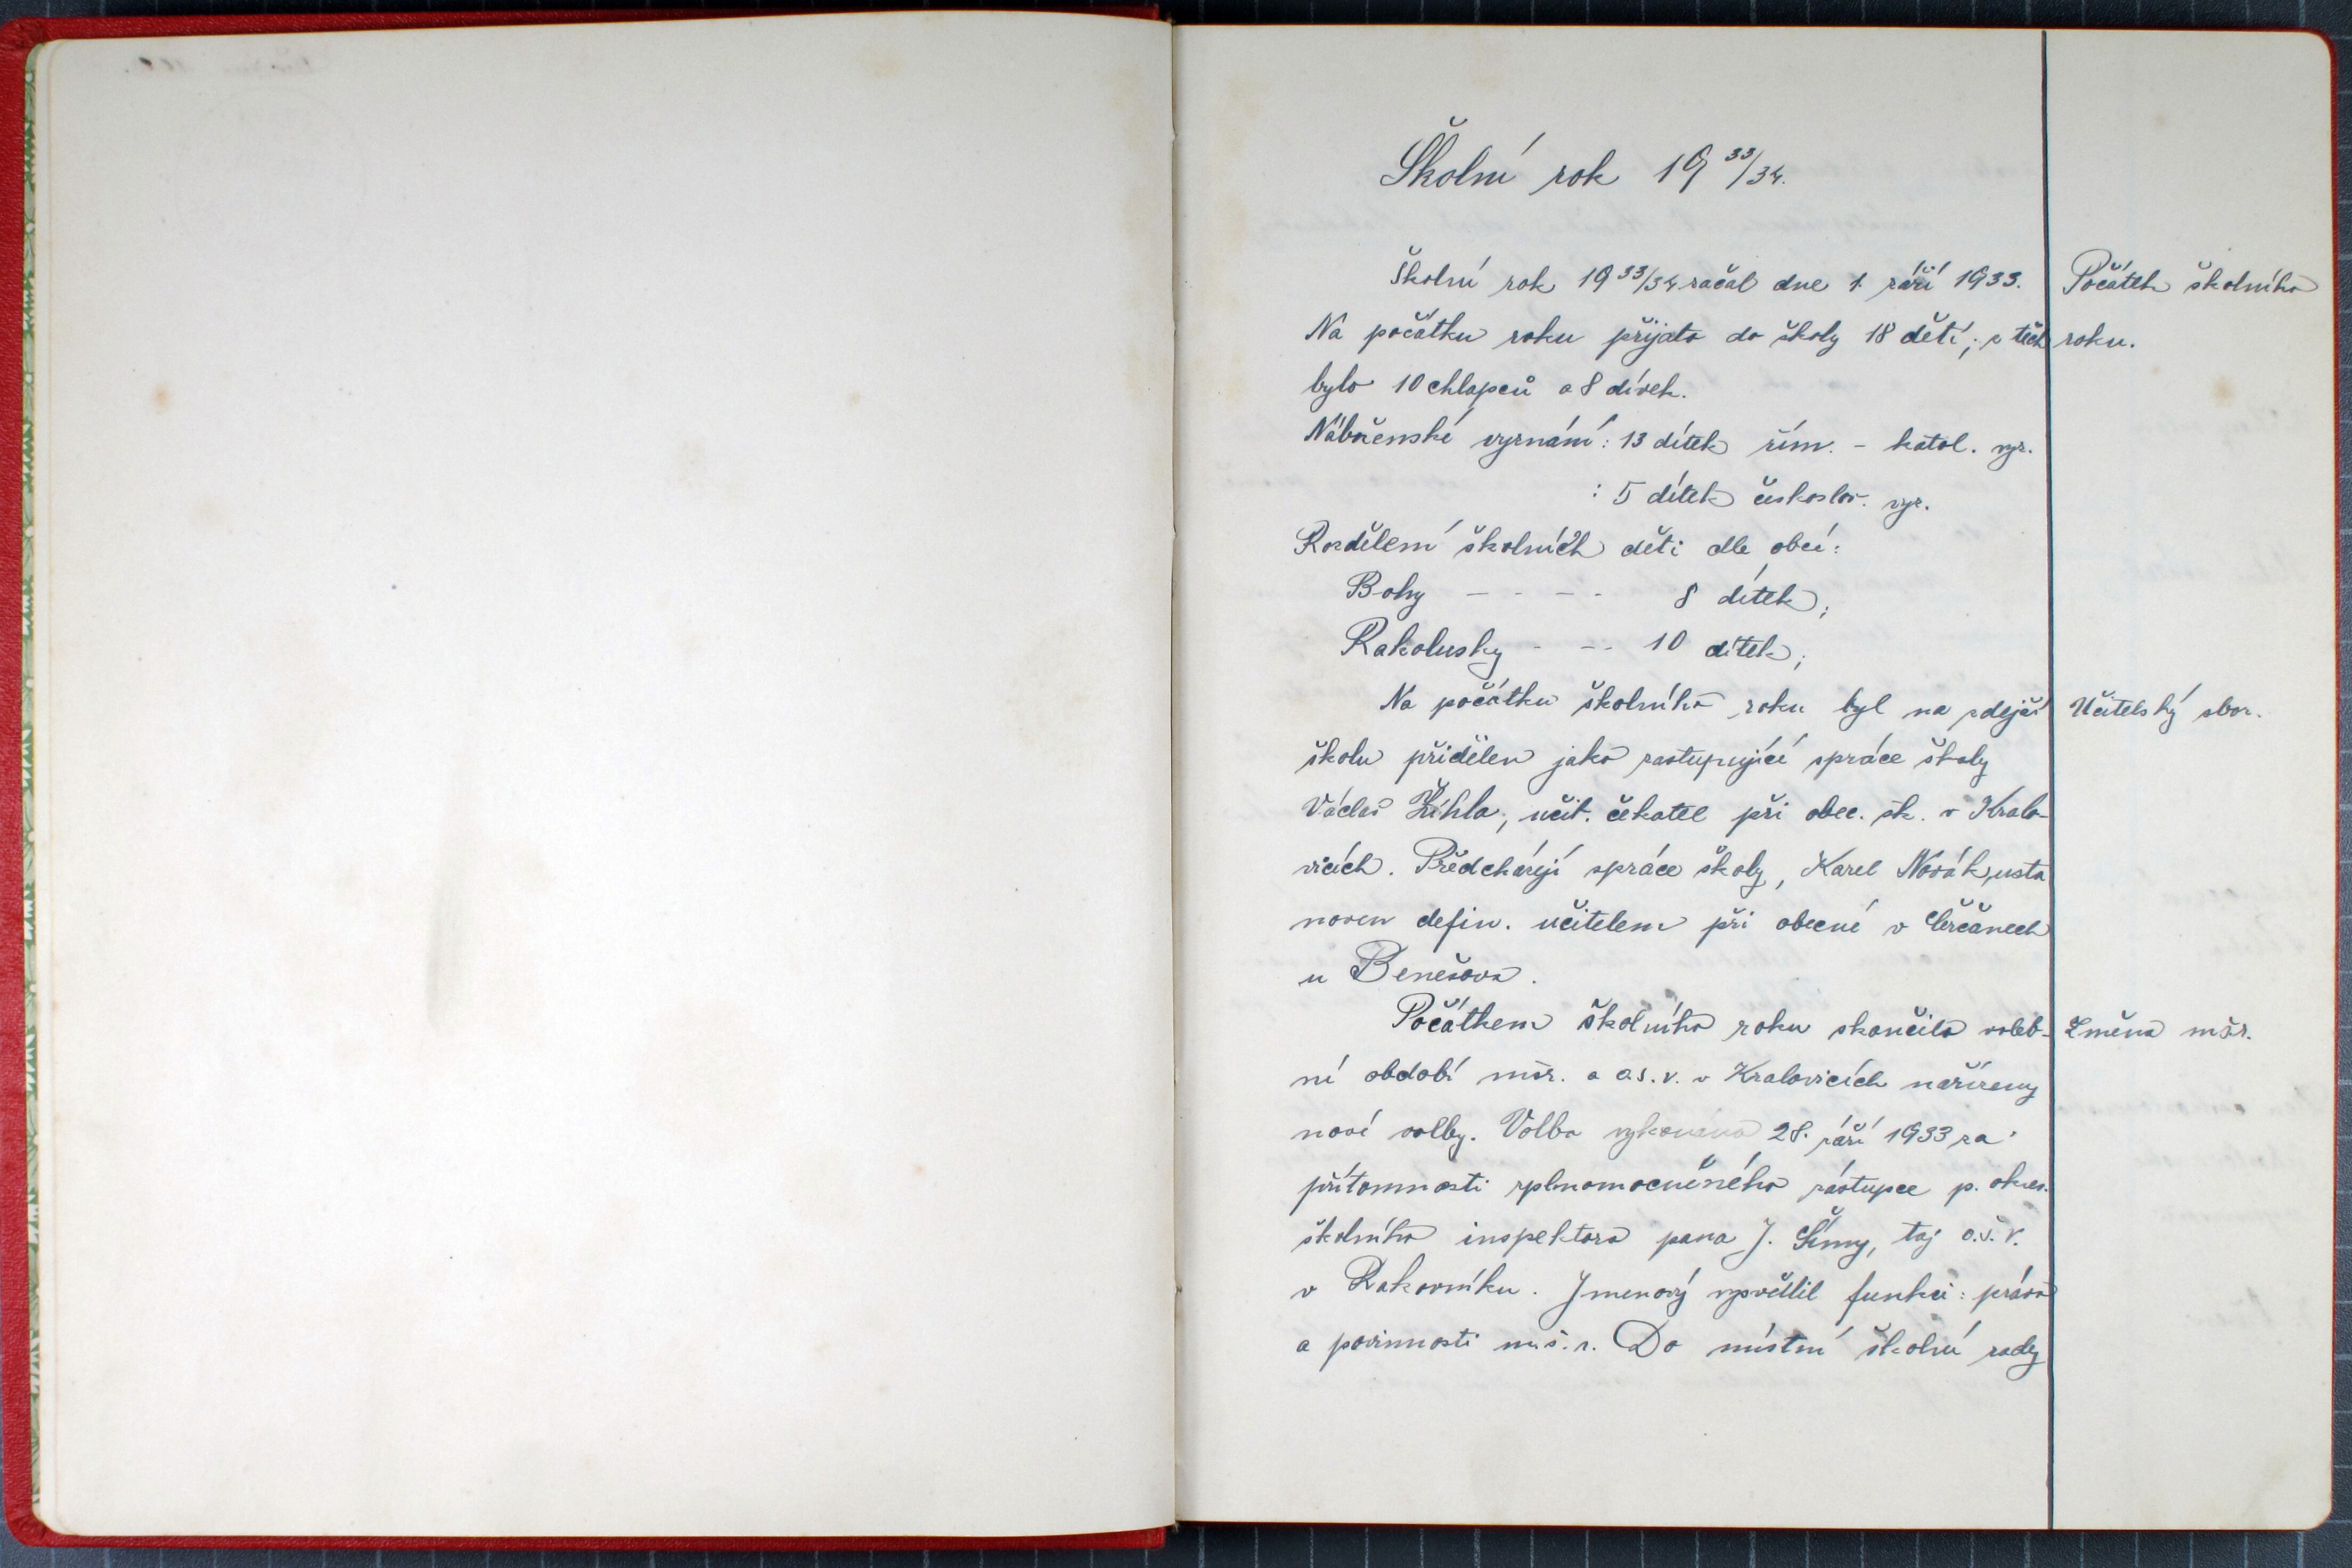 Školní rok 19 33/34.
Školní rok 19 33/34 začal dne 1. září 1933.
Počátek školního
Na počátku roku přijato do školy 18 dětí; z těch
roku.
bylo 10 chlapců a 8 dívek.
Náboženské vyznání: 13 dítek řím. - katol. vyz.
: 5 dítek českoslov. vyz.
Rozdělení školních dětí dle obcí:
Bohy - - - - 8 dítek;
Rakolusky - - - 10 dítek;
Na počátku školního roku byl na zdejší
Učitelský sbor.
školu přidělen jako zastupující správce školy
Václav Žihla, učit. čekatel při obec. šk. v Kralo-
vicích. Předcházejí správce školy, Karel Novák, usta
noven defin. učitelem při obecné v Čerčanech
u Benešova.
Počátkem školního roku skončilo voleb-
Změna mšr.
ní období mšr. a o.s.v. v Kralovicích nařízeny
nové volby. Volba vykonána 28. září 1933 za
přítomnosti zplnomocněného zástupce p. okres.
školního inspektora pana J. Šímy, taj o.š.v.
v Rakovníku. Jmenový vysvětlil funkci: práva
a povinnosti m.š.r. Do místní školní rady